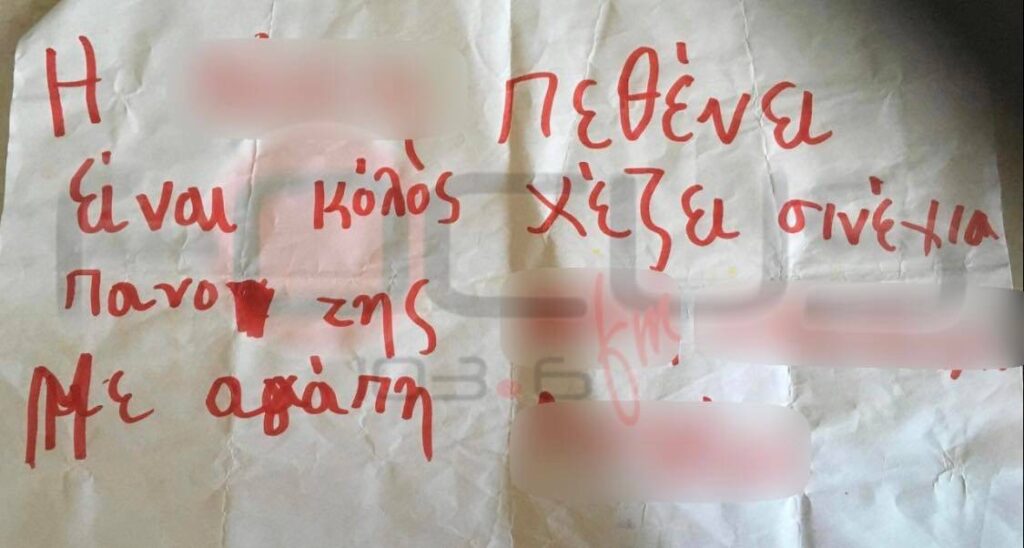 Η πεθένει
είναι κόλός χέζει σινέχια
πανο της
Με αγάπη
103.6 fm